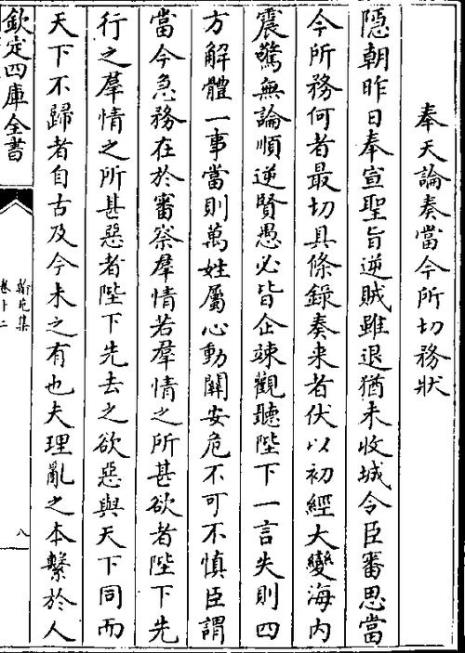 奉天論奏當今所切務狀
隱朝昨日奉宣聖旨逆賊雖退猶未收城令臣審思當
今所務何者最切具條錄奏来者伏以初經大變海内
震驚無論順逆賢愚必皆企竦觀聽陛下一言失則四
方解體一事當則萬姓屬心動闗安危不可不慎臣謂
當今急務在於審察羣情若羣情之所甚欲者陛下先
行之羣情之所甚惡者陛下先去之欲惡與天下同而
天下不歸者自古及今未之有也夫理亂之本繫於人
欽定四庫全書
翰苑集
卷十二
八